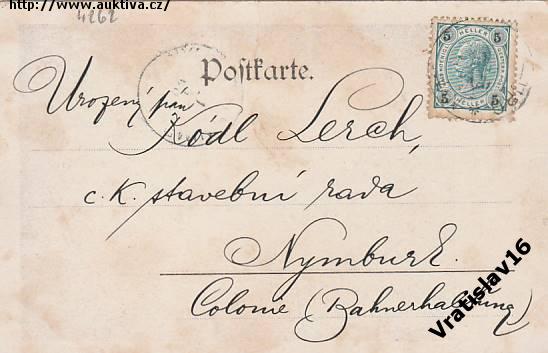 http://www.auktiva.cz/
4262
Postkarte.
5 HELLER 5
5 HELLER 5
Urozený pan
Lerch,
c. K. stavební rada
Nymburk.
Colonie (Bahnerhaltung)
Vratislav16